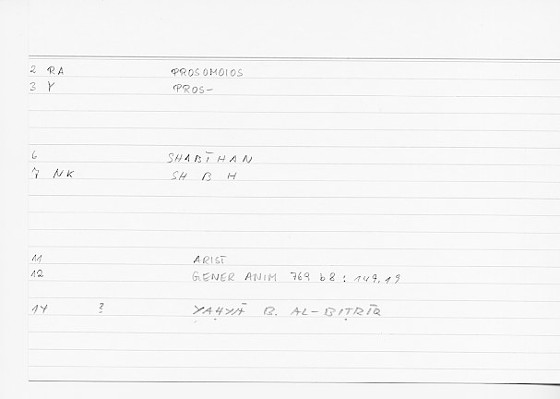 2 RA PROSOMOIOS
3 Y PROS-
6 SHABĪHAN
7 NK SH B H
11 ARIST
12 GENER ANIM 769 b8 : 149.19
14 ? YAḤYĀ B. AL-BIṬRĪQ